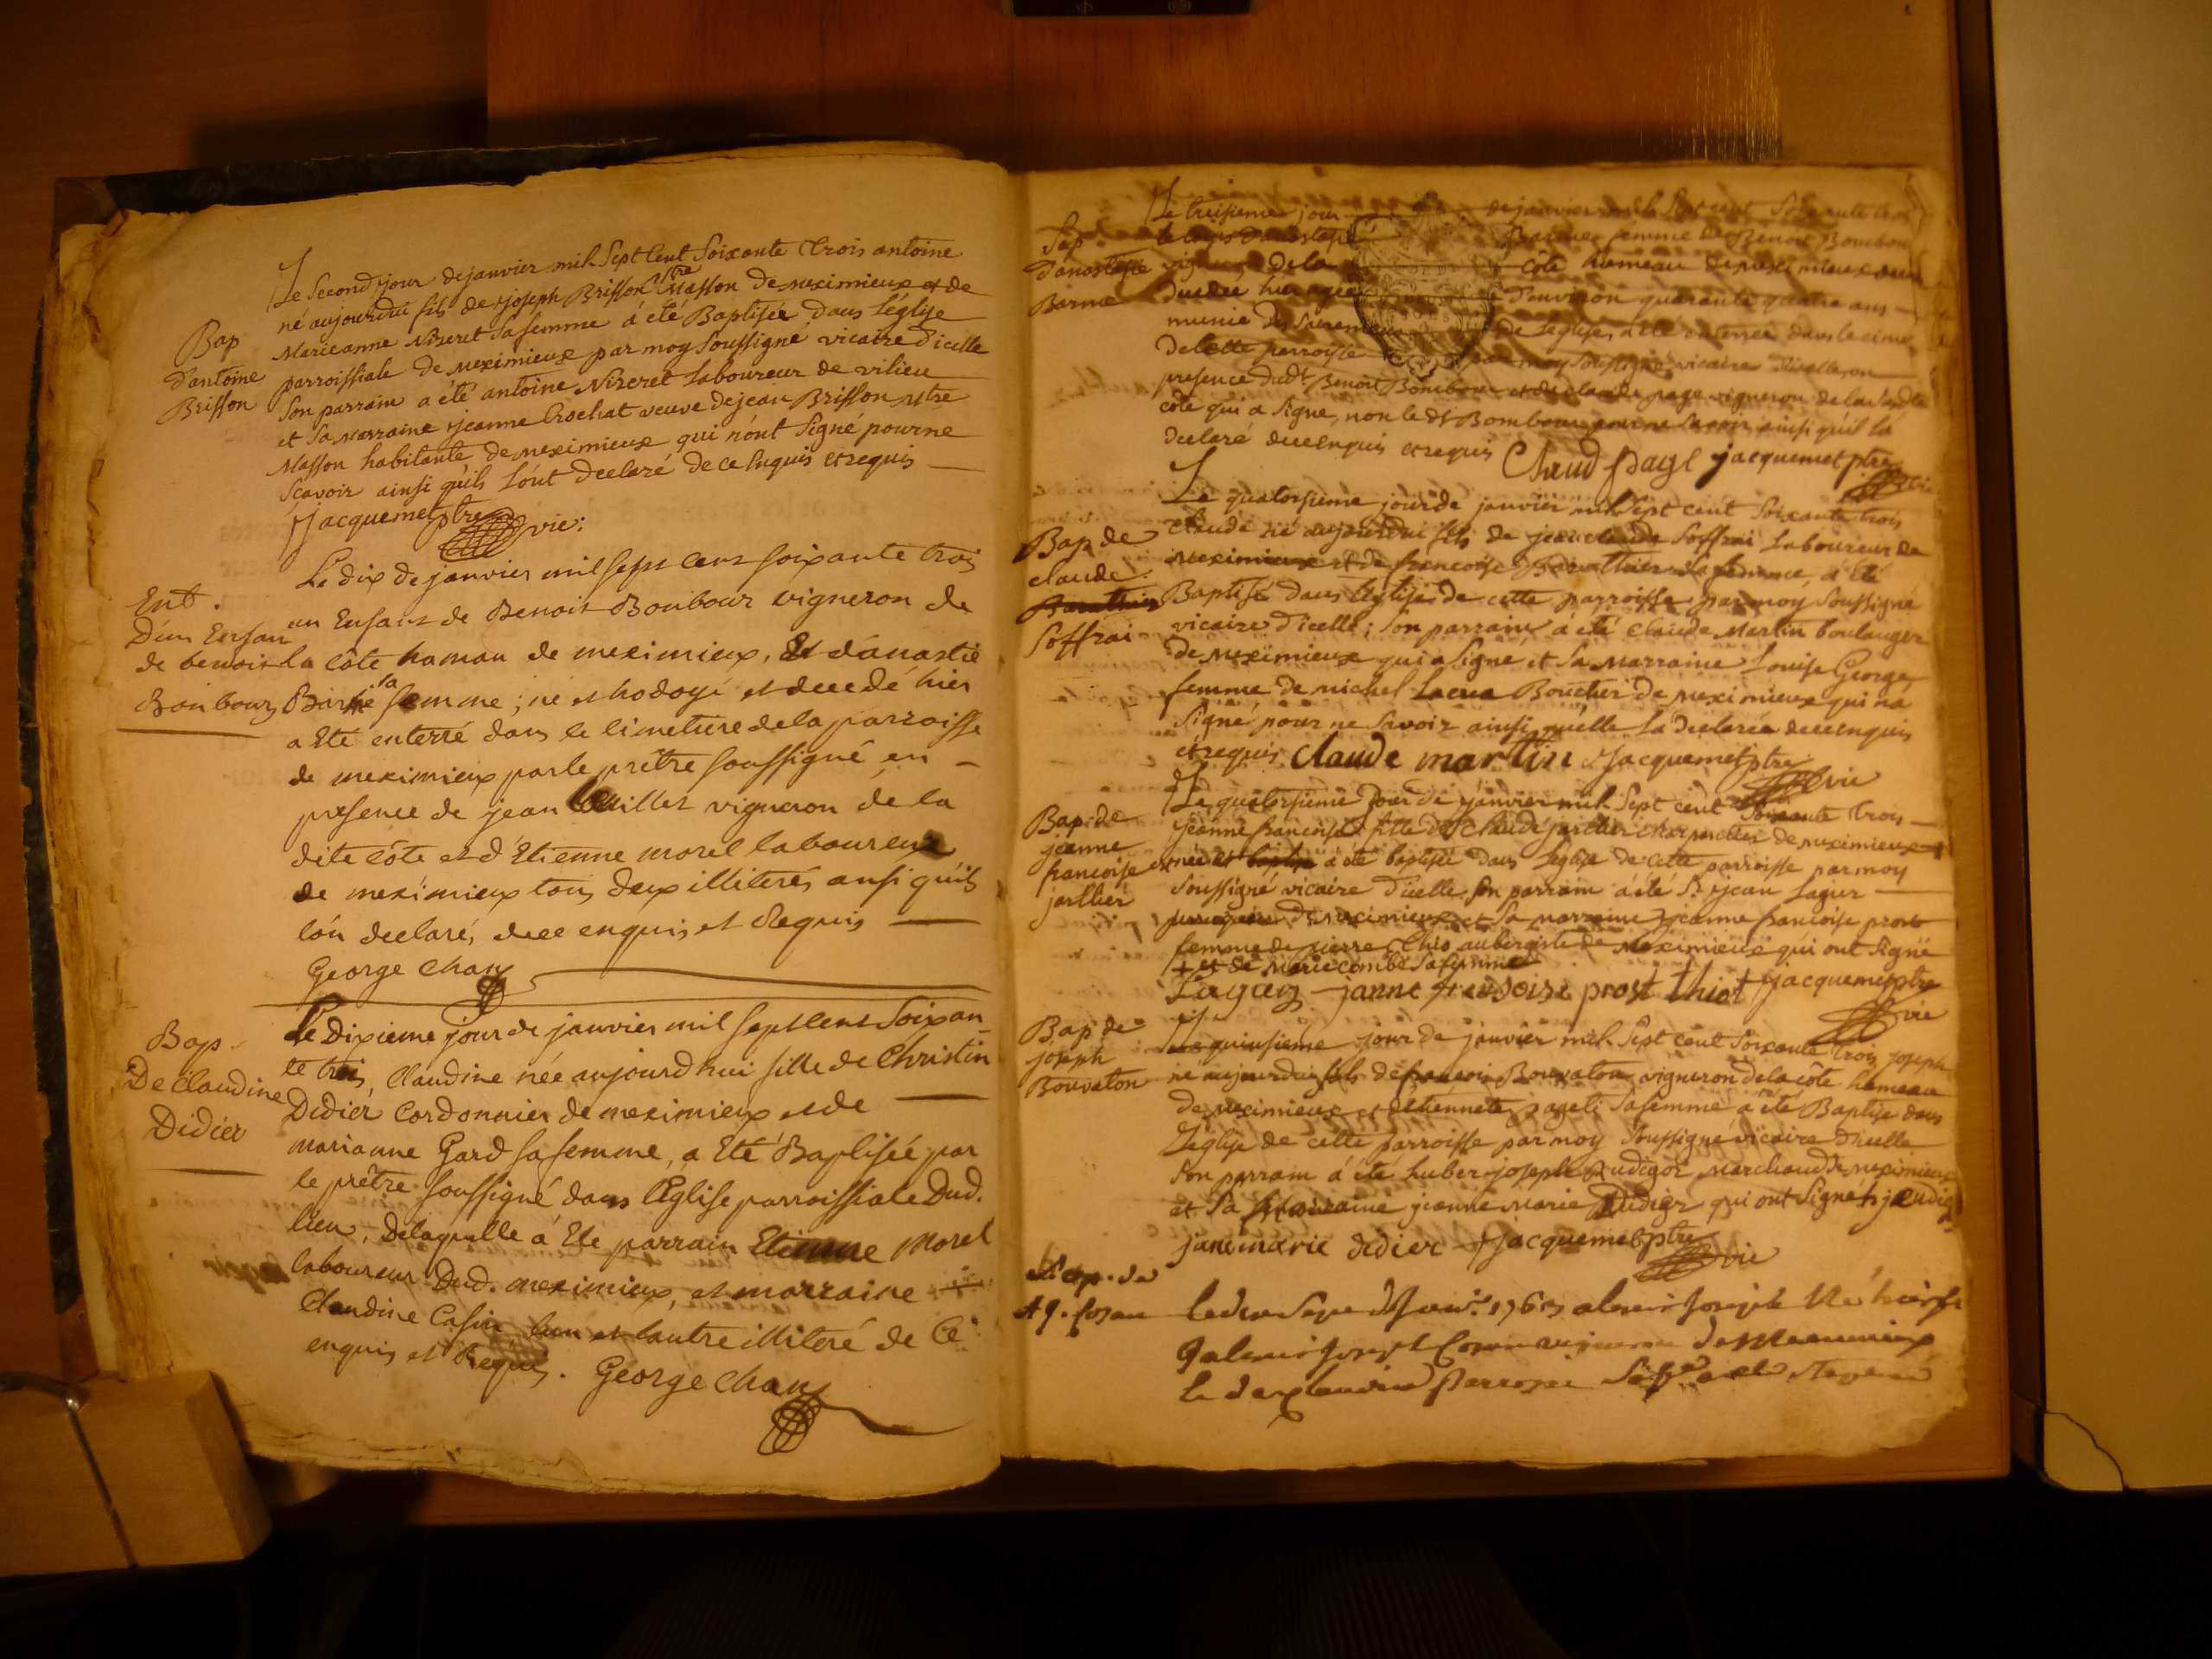 Bap
d'antoine
Brisson
Le second jour de janvier mil Sept Cent Soixante trois antoine
né aujourdui fils de joseph Brisson mtre Masson de meximieux et de
Marieanne Nizeret Sa femme á été Baptisée dans l'église
parroissiale de meximieux par moy soussigné vicaire d'icelle
Son parrain a été antoine Nizeret laboureur de vilieu
et Sa Marraine jeanne Crochat veuve de jean Brisson mtre
Masson habitante de meximieux qui n'ont Signé pour ne
Scavoir ainsi qu'ils l'ont declaré de ce Enquis et requis
Jacquemet ptre vic:
Ent.
D'un Enfan
de benoit
Bonbour
Le dix de janvier mil sept cent soixante trois
un Enfant de Benoit Bonbour vigneron de
la côte hamau de meximieux, Et d'anastie
Barme sa femme; né et hodoyé et decedé hier
a Eté enterré dans le Cimetiere de la parroisse
de meximieux par le prêtre soussigné en
presence de jean vigneron de la
dite côte et d'Etienne morel laboureur
de meximieux tous deux illiterés ansi qu'ils
l'ón declaré, de ce enquis et Requis
George Chan
Bap
De Claudine
Didier
Le Dixieme jour de janvier mil sept cent Soixan
te trois, Claudine née aujourd'hui fille de Christin
Didiér Cordonnier de meximieux et de
marianne Gard sa femme, a Eté Baptisée par
le prêtre soussigné dans l'Eglise parroissiale Dud.
lieu, De laquelle á Eté parrain Etienne morel
laboureur Dud. meximieux, et marraine
Claudine Casin l'un et l'autre illiteré de Ce
enquis et Requis. George Chan
Sep
d'anastasie
Barme
Le treisieme jour de janvier mil Sept cent Soixante trois
le corps d'anastasie Barme femme de Benoit Bombour
vigneron de la côte hameau de meximieux
decedée hier agée d'environ quarante quatre ans
munie des sacremens de l'eglise, a été enterrée dans le cime
de cette parroisse par moy soussigné vicaire d'icelle, en
presence dudt Benoit Bombour et de claude page vigneron de la
côte qui a signé, non le dt Bombour pour ne savoir ainsi qu'il la
declaré de ce enquis et requis Claud page jacquemet ptre
vic
Bap de
claude
Soffrai
Le quatorsieme jour de janvier mil Sept cent Soixante trois
claude né aujourdui fils de jean claude Soffrai laboureur de
meximieux et de francoise sa femme, á été
Baptisé dans l'église de cette parroisse par moy Soussigné
vicaire d'icelle; Son parrain á été Claude Martin boulanger
de meximieux qui a Signé et Sa Marraine Louise George
femme de michel Lacua Boucher de meximieux qui n'a
Signé pour ne Savoir ainsi qu'elle la declarée de ce enquis
et requis claude martin Jacquemet ptre
vic
Bap de
jeanne
francoise
jarllier
Le quatorsieme jour de janvier mil Sept cent Soixante trois
jeanne francoise fille de Claude jarllier charpentier de meximieux +
née et á été baptisée dans l'eglise de cette parroisse par moy
Soussigné vicaire d'icelle son parrain á été Sr jean Lagier
de meximieux et Sa marraine jeanne francoise prost
femme de pierre Chio aubergiste de Meximieux qui ont Signé
+ et de Marie combe Sa femme
Lagier janne francoise prost thiot jacquemet ptre
vic
Bap de
joseph
Bouvaton
Le quinsieme jour de janvier mil Sept cent Soixante trois joseph
né aujourdui fils de francois Bouvaton vigneron de la côte hameau
de meximieux et d'étiennete pageti Sa femme á été Baptise dans
L'église de cette parroisse par moy Soussigné vicaire d'icelle
Son parrain á été huber joseph Rudigoz Marchand de meximieux
et Sa Marraine jeanne Marie Didier qui ont Signé
jane marie didier Jacquemet ptre
vic
joseph né hier